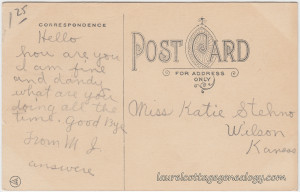 125
CORRESPONDENCE
Hello
how are you
I am fine
and dandy
what are you
doing all the
time. Good Bye
from M J
answere
POST CARD
FOR ADDRESS
ONLY
Miss Katie Stehno
Wilson
Kansas
laurelcottagegenealogy.com